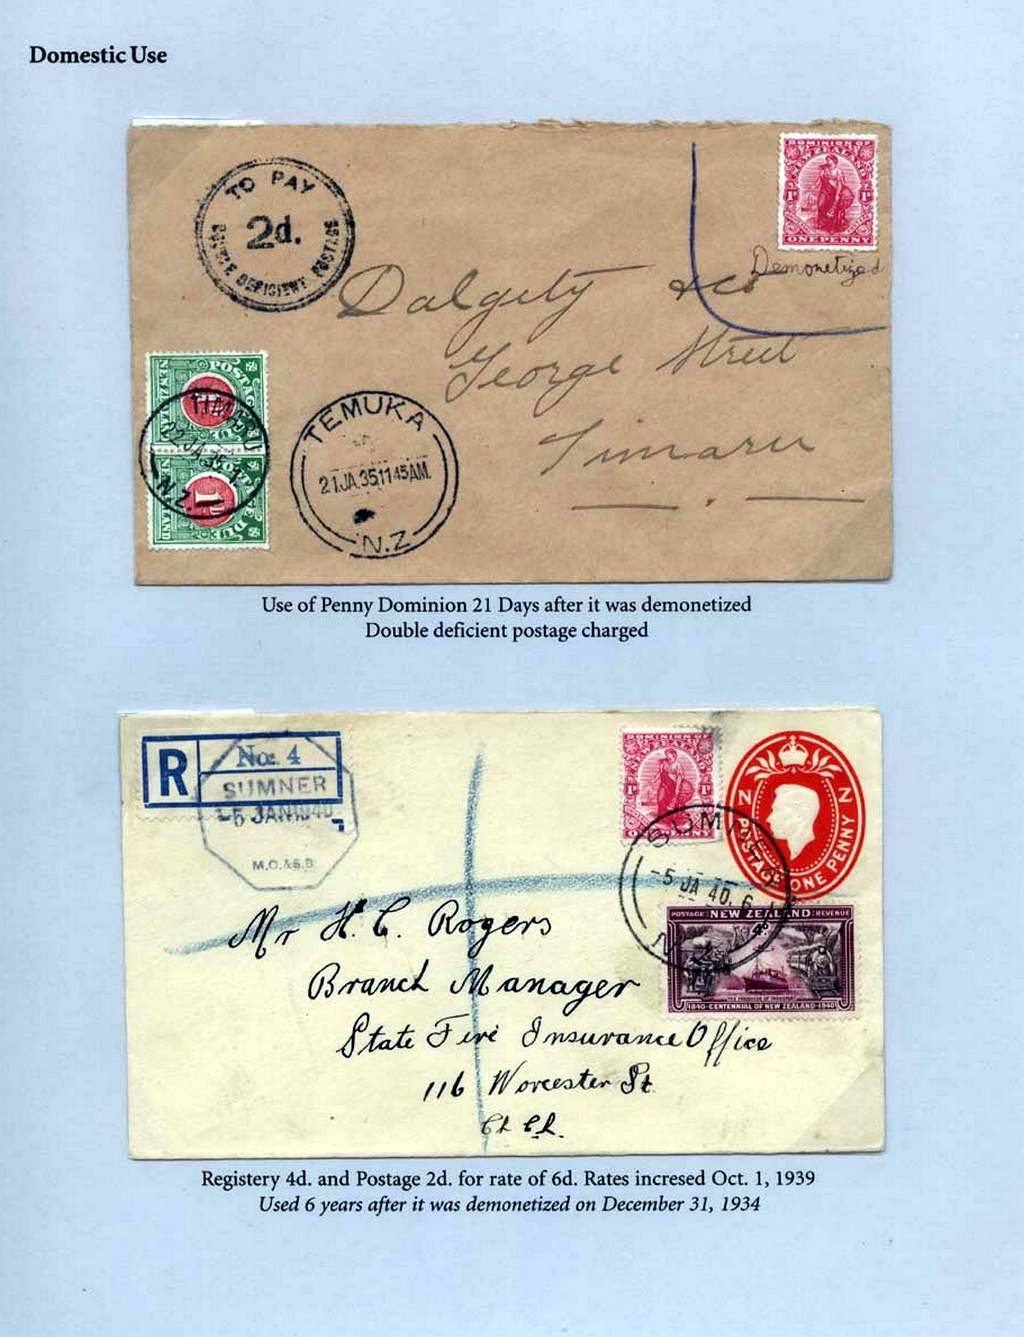 Domestic Use
TO PAY
2d.
DOUBLE DEFICIENT POSTAGE
DOMINION OF
NEW ZEALAND
1D 1D
ONE PENNY
Demonetized
Dalgety & Co
George Street
Timaru
NEW ZEALAND
POSTAGE
TIMARU
22 JA 35
N.Z.
1D
TEMUKA
21 JA 35 11 45 AM.
N.Z
Use of Penny Dominion 21 Days after it was demonetized
Double deficient postage charged
R
No: 4
SUMNER
-5 JAN 1940
M.O.&S.B
DOMINION OF
NEW ZEALAND
1D 1D
N Z
POSTAGE
ONE PENNY
SUMNER
-5 JA 40. 6
POSTAGE NEW ZEALAND REVENUE
4D
1840-CENTENNIAL OF NEW ZEALAND-1940
Mr H. C. Rogers
Branch Manager
State Fire Insurance Office
116 Worcester St.
Ch. Ch.
Registery 4d. and Postage 2d. for rate of 6d. Rates incresed Oct. 1, 1939
Used 6 years after it was demonetized on December 31, 1934